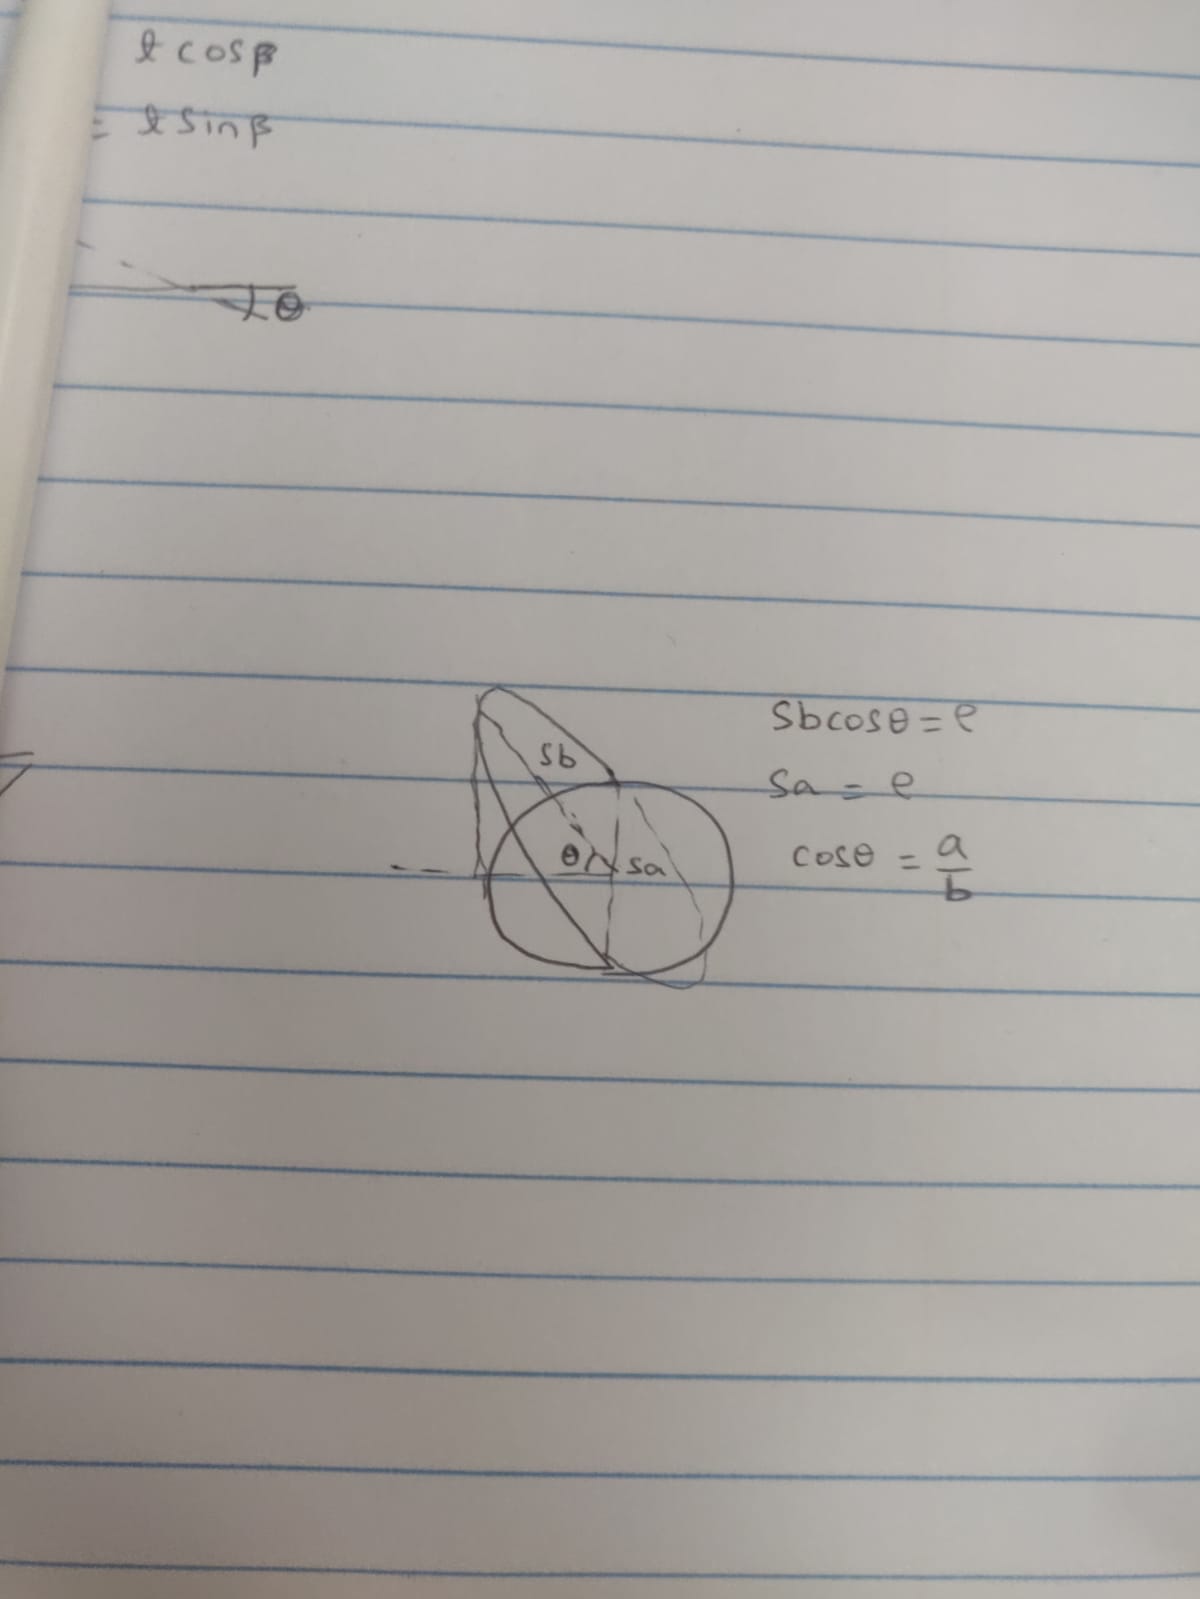 l cosβ
= l sinβ
θ
Sb
θ
Sa
Sbcosθ = e
Sa = e
cosθ = a/b